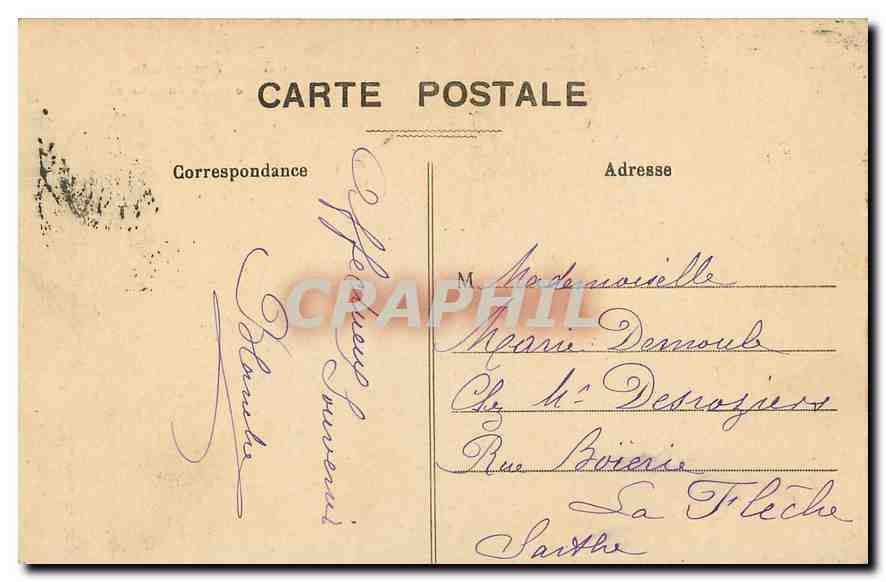 CARTE POSTALE
Correspondance
Adresse
Affectueux Souvenir
Blanche
M Mademoiselle
Marie Demoule
Chz Mr Desroziers
Rue Boïerie
La Flèche
Sarthe
CRAPHIL